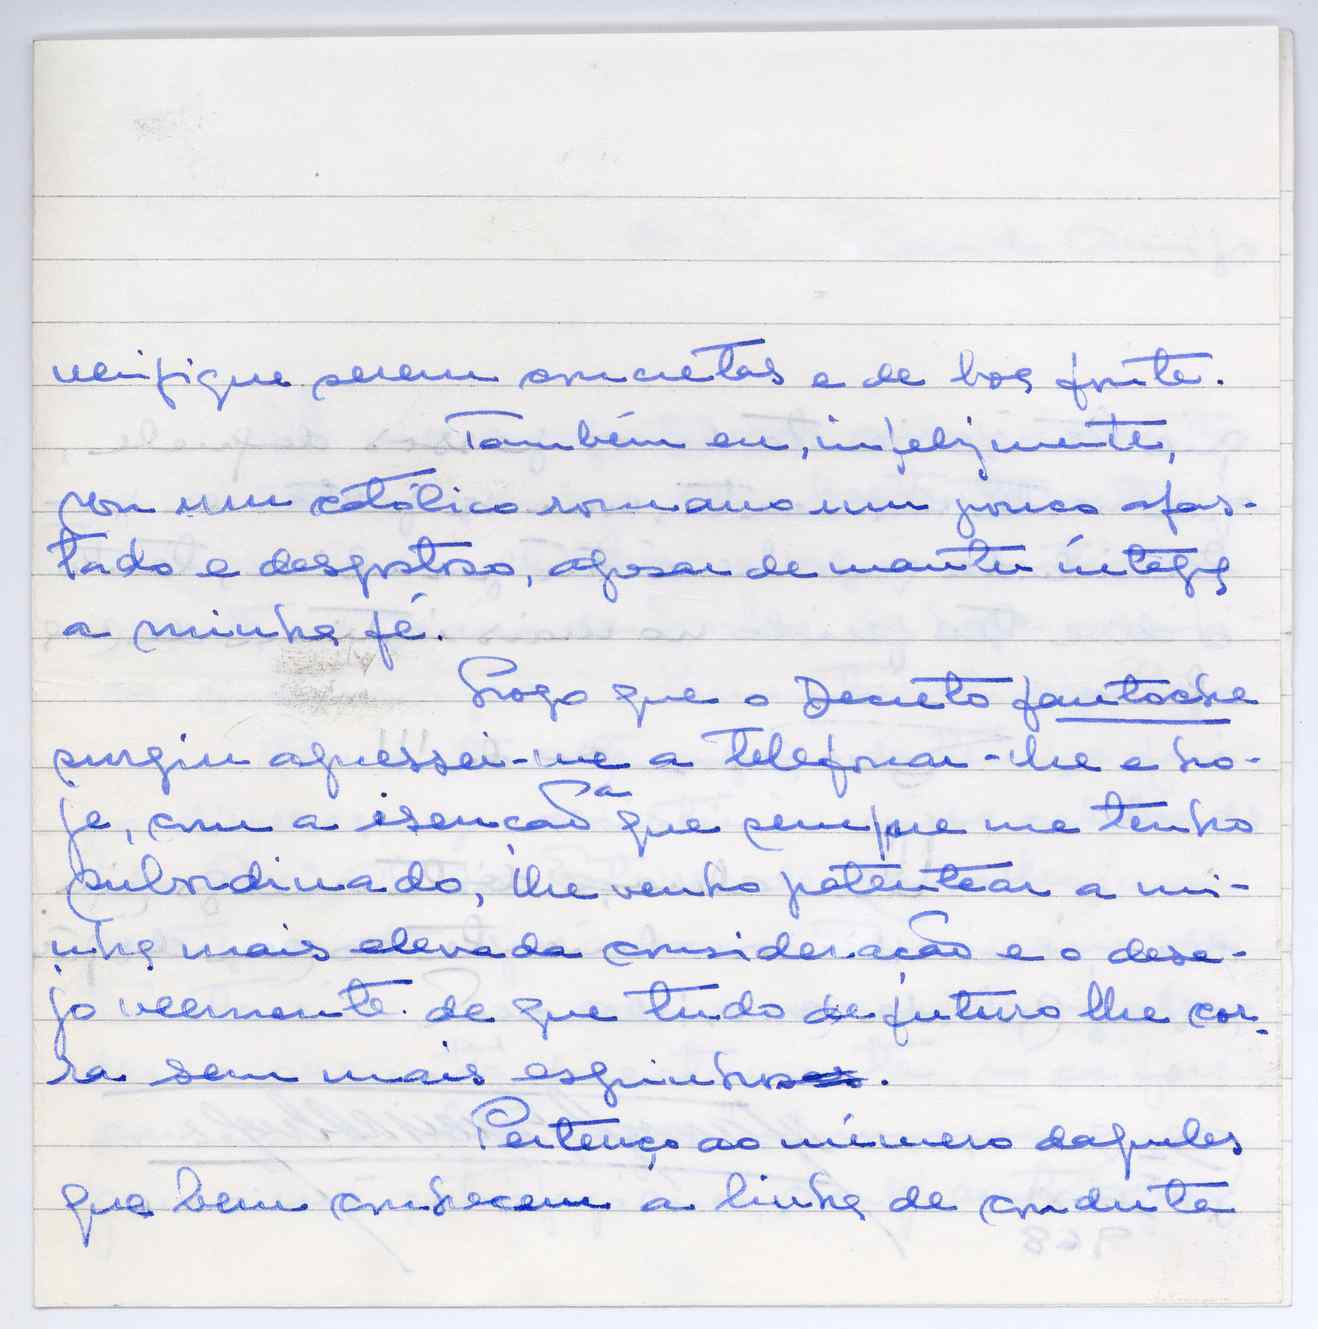 verifique serem concretas e de boa fonte.
Também eu, infelizmente,
sou um católico romano um pouco afas-
tado e desgostoso, apesar de manter íntegra
a minha fé.
Logo que o Decreto fantoche
surgiu apressei-me a telefonar-lhe e ho-
je, com a isenção a que sempre me tenho
subordinado, lhe venho patentear a mi-
nha mais elevada consideração e o dese-
jo veemente de que tudo de futuro lhe cor-
ra sem mais espinhos.
Pertenço ao número daqueles
que bem conhecem a linha de conduta